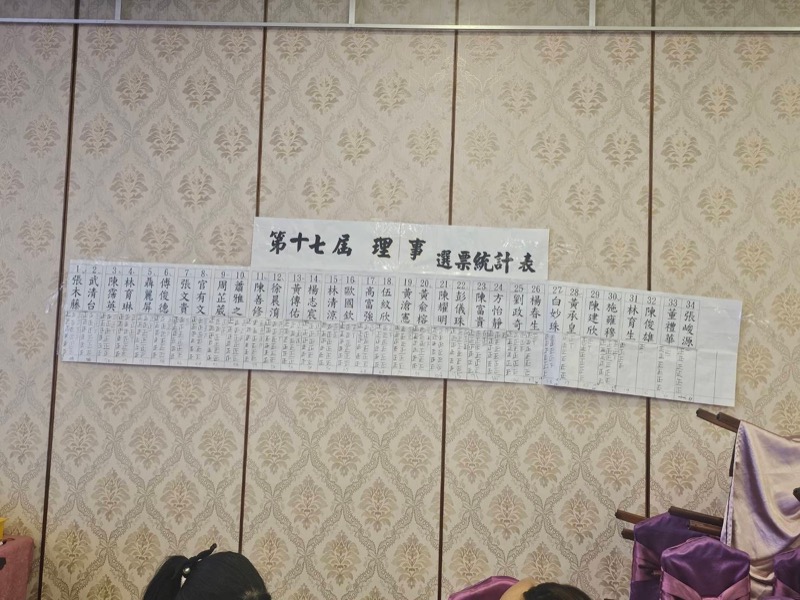 第十七屆 理 事 選票統計表
1 張木藤
2 武清台
3 陳霈英
4 林育琳
5 聶麗屏
6 傅俊德
7 張文貴
8 官有文
9 周正葳
10 蕭雅之
11 陳善修
12 徐晨淯
13 黃傳佑
14 楊志宸
15 林清涼
16 歐國欽
17 高富強
18 伍紋欣
19 黃滄憲
20 黃俞榕
21 陳耀明
22 彭儀珠
23 陳富貴
24 方怡靜
25 劉政奇
26 楊春生
27 白妙珠
28 黃承皇
29 陳建欣
30 施雍穆
31 林育生
32 陳俊雄
33 董禮華
34 張峻源